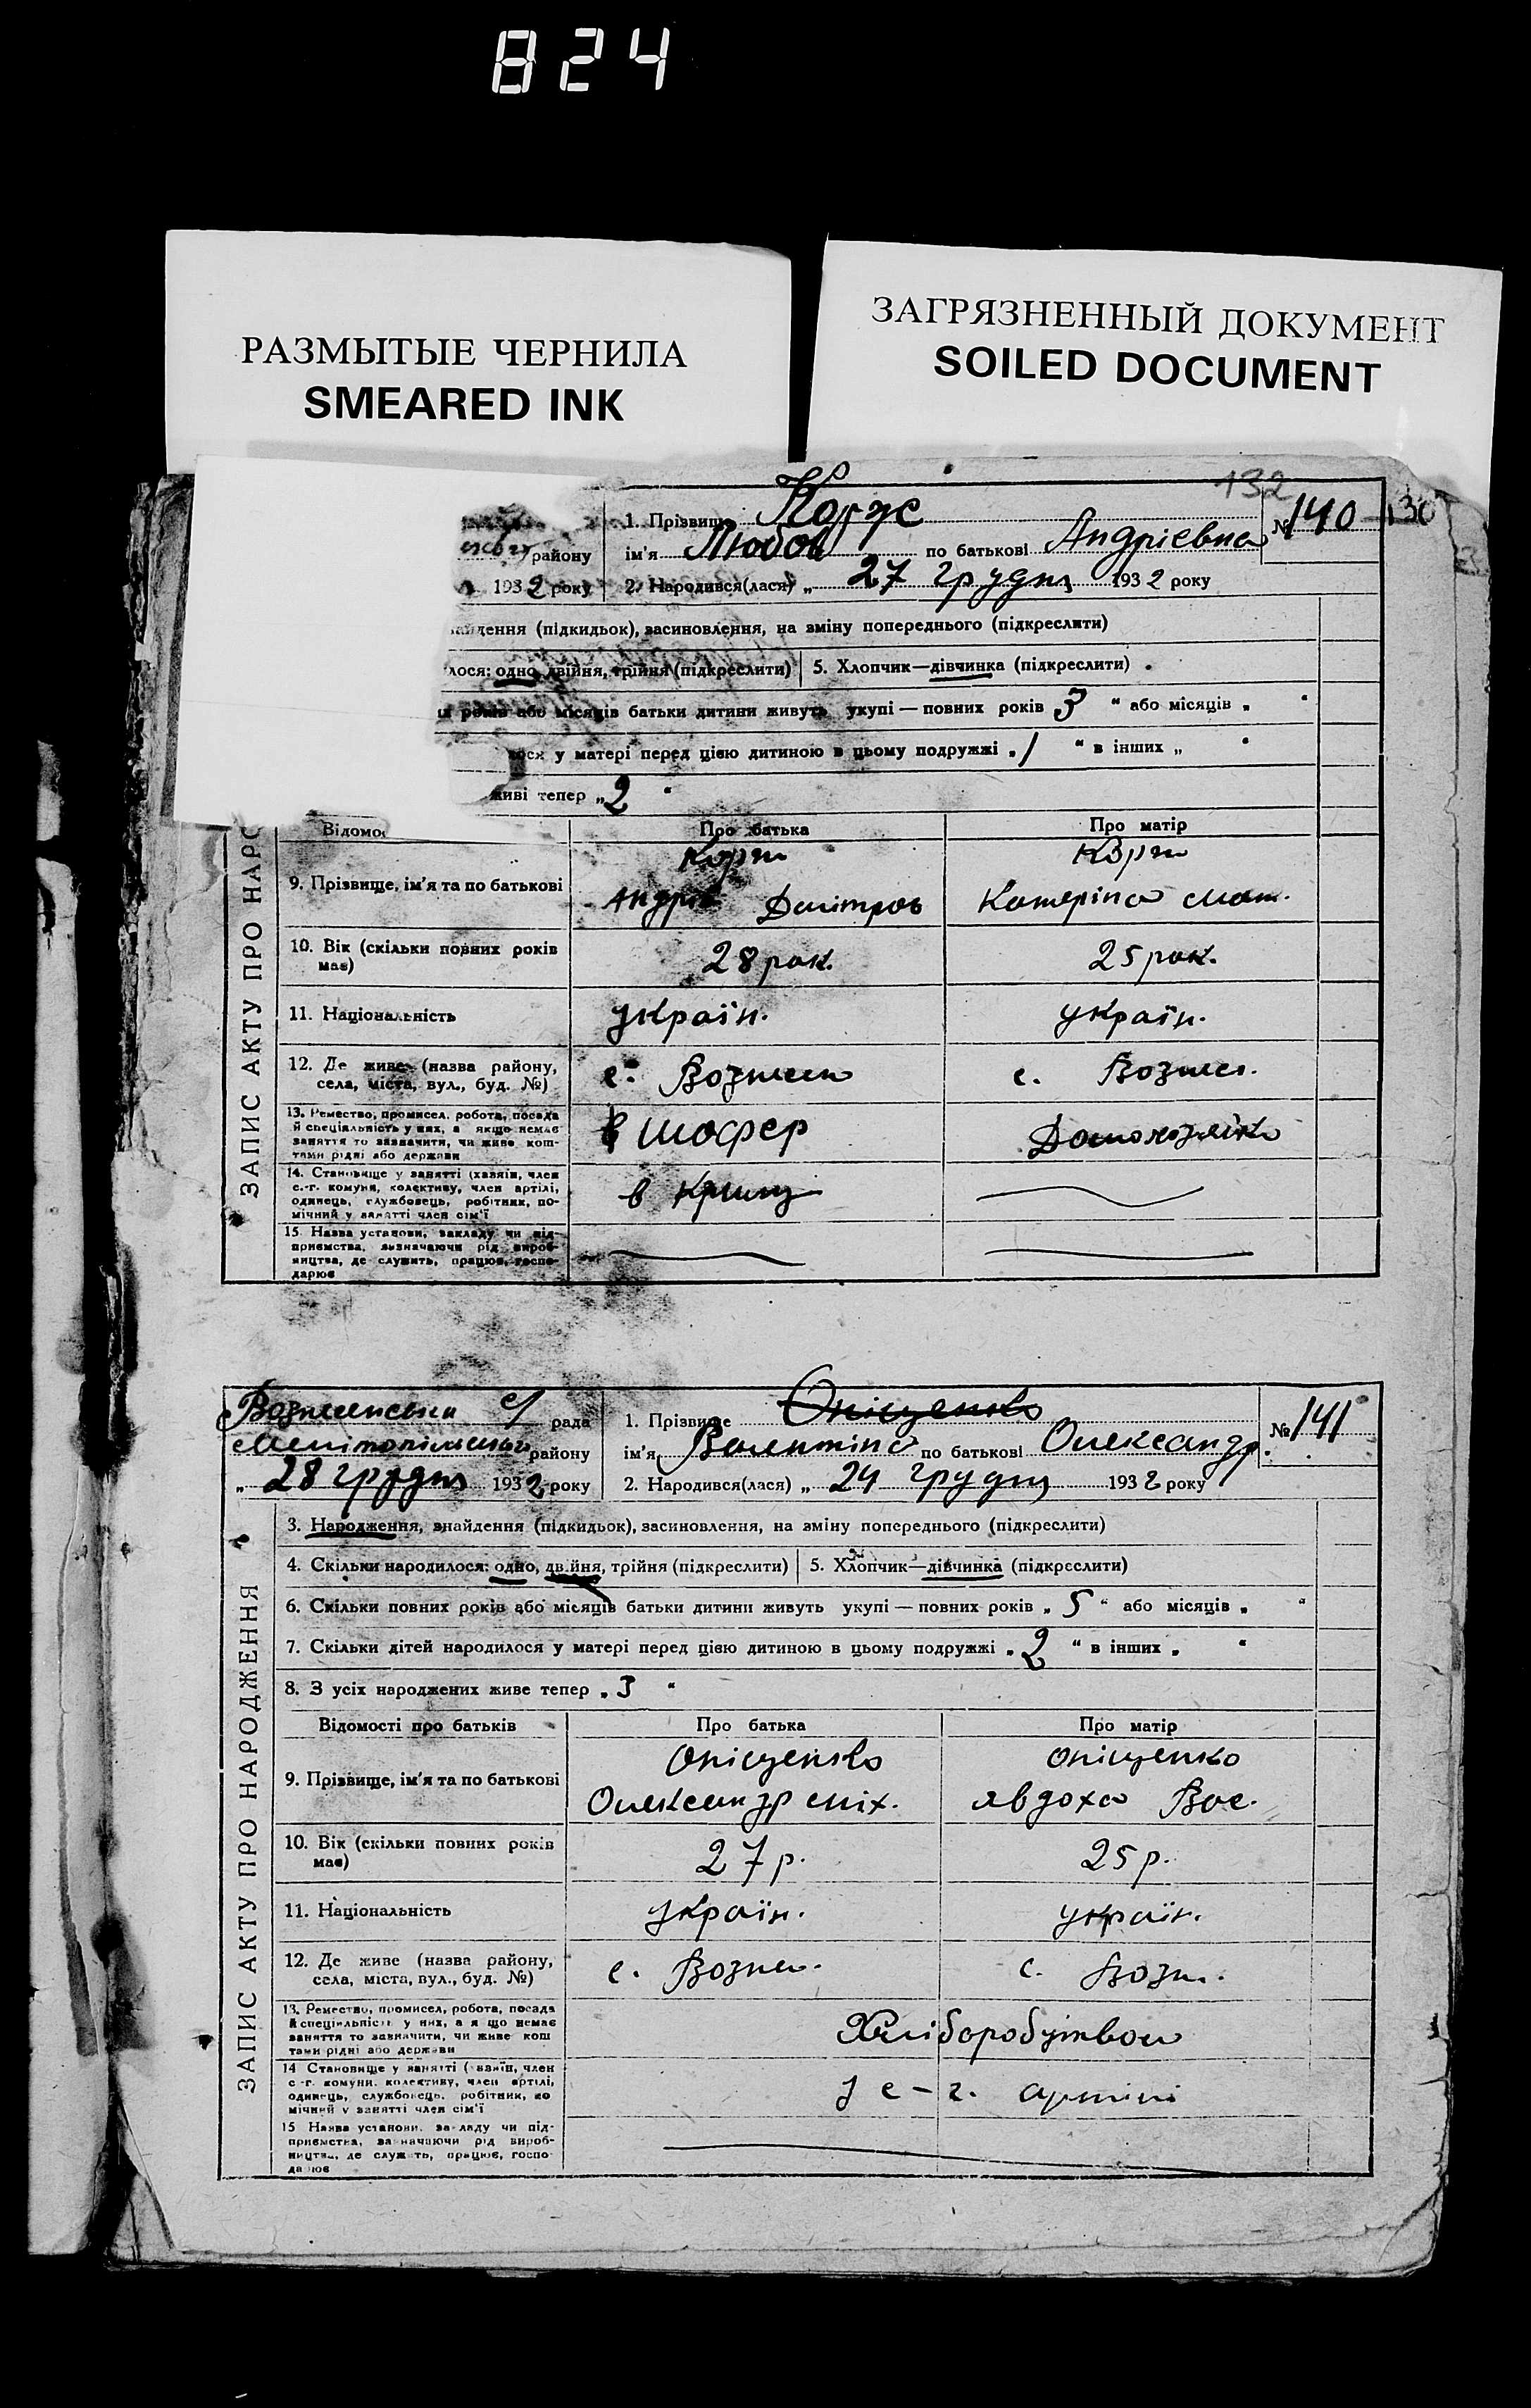 824
РАЗМЫТЫЕ ЧЕРНИЛА
SMEARED INK
ЗАГРЯЗНЕННЫЙ ДОКУМЕНТ
SOILED DOCUMENT
132
130
1. Прізвище Корж
№ 140
району
ім'я Любов по батькові Андріевна
1932 року
2. Народився(лася) „ 27 грудня 1932 року
айдення (підкидьок), засиновлення, на зміну попереднього (підкреслити)
лося: одно, двійня, трійня (підкреслити) 5. Хлопчик—дівчинка (підкреслити)
років або місяців батьки дитини живуть укупі — повних років 3 “ або місяців „ “
лося у матері перед цією дитиною в цьому подружжі „ 1 “ в інших „ “
живі тепер „ 2 “
ЗАПИС АКТУ ПРО НАРО
Відомос Про батька Про матір
9. Прізвище, ім'я та по батькові
Корж Корж
Андрій Дмитров Катеріна Мат.
10. Вік (скільки повних років має)
28 рок. 25 рок.
11. Національність україн. україн.
12. Де живе (назва району, села, міста, вул., буд. №)
с. Вознесен с. Вознес.
13. Ремество, промисел, робота, посада
й спеціальність у них, а якщо немає
заняття то зазначити, чи живе кош-
тами рідні або держави
шофер Домохозяйка
14. Становище у занятті (хазяїн, член
с.-г. комуни, колективу, член артілі,
одинець, службовець, робітник, по-
мічний у занятті член сім'ї
в Криму
15. Назва установи, закладу чи під-
приємства, визначаючи рід вироб-
ництва, де служить, працює, госпо-
дарює
Вознесенська с/ рада
1. Прізвище Оніщенко
№ 141
Мелітопільського району
ім'я Валентіна по батькові Олександр.
„ 28 грудня 1932 року
2. Народився(лася) „ 24 грудня 1932 року
ЗАПИС АКТУ ПРО НАРОДЖЕННЯ
3. Народження, знайдення (підкидьок), засиновлення, на зміну попереднього (підкреслити)
4. Скільки народилося: одно, двійня, трійня (підкреслити) 5. Хлопчик—дівчинка (підкреслити)
6. Скільки повних років або місяців батьки дитини живуть укупі — повних років „ 5 “ або місяців „ “
7. Скільки дітей народилося у матері перед цією дитиною в цьому подружжі „ 2 “ в інших „ “
8. З усіх народжених живе тепер „ 3 “
Відомості про батьків Про батька Про матір
9. Прізвище, ім'я та по батькові
Оніщенко Оніщенко
Олександр Міх. Явдоха Вас.
10. Вік (скільки повних років має)
27 р. 25 р.
11. Національність україн. україн.
12. Де живе (назва району, села, міста, вул., буд. №)
с. Вознес. с. Возн.
13. Ремество, промисел, робота, посада
й спеціальність у них, а якщо немає
заняття то зазначити, чи живе кош
тами рідні або держави
Хліборобством
14 Становище у занятті (хазяїн, член
с-г. комуни, колективу, член артілі,
одинець, службовець, робітник, по
мічний у занятті член сім'ї
у с-г. артілі
15 Назва установи, закладу чи під-
приємства, зазначаючи рід вироб-
ництва, де служить, працює, госпо
дарює